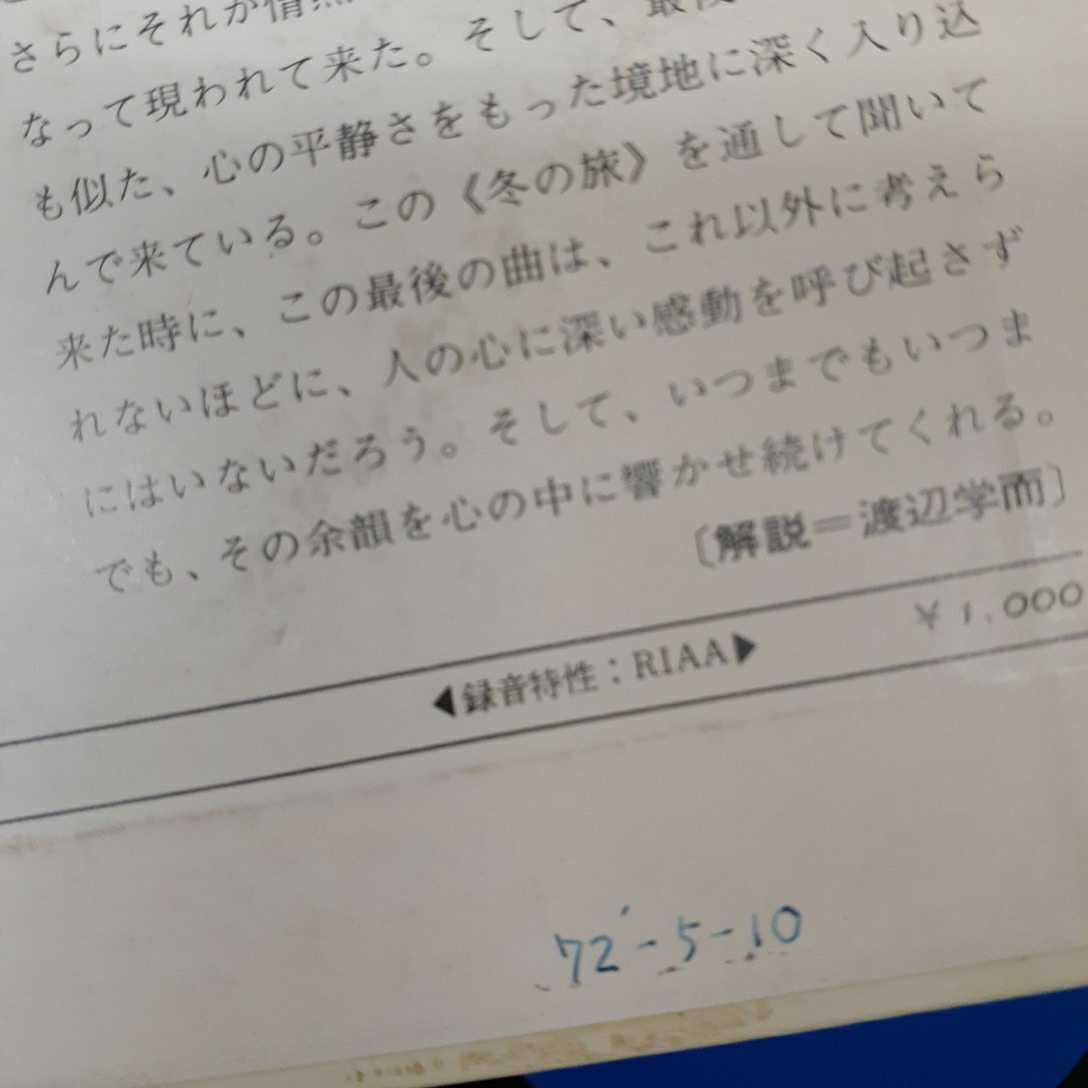 さらにそれが情
なって現われて来た。そして、最
も似た、心の平静さをもった境地に深く入り込
んで来ている。この《冬の旅》を通して聞いて
来た時に、この最後の曲は、これ以外に考えら
れないほどに、人の心に深い感動を呼び起さず
にはいないだろう。そして、いつまでもいつま
でも、その余韻を心の中に響かせ続けてくれる。
〔解説＝渡辺学而〕
￥1,000
◀録音特性：RIAA▶
72´-5-10